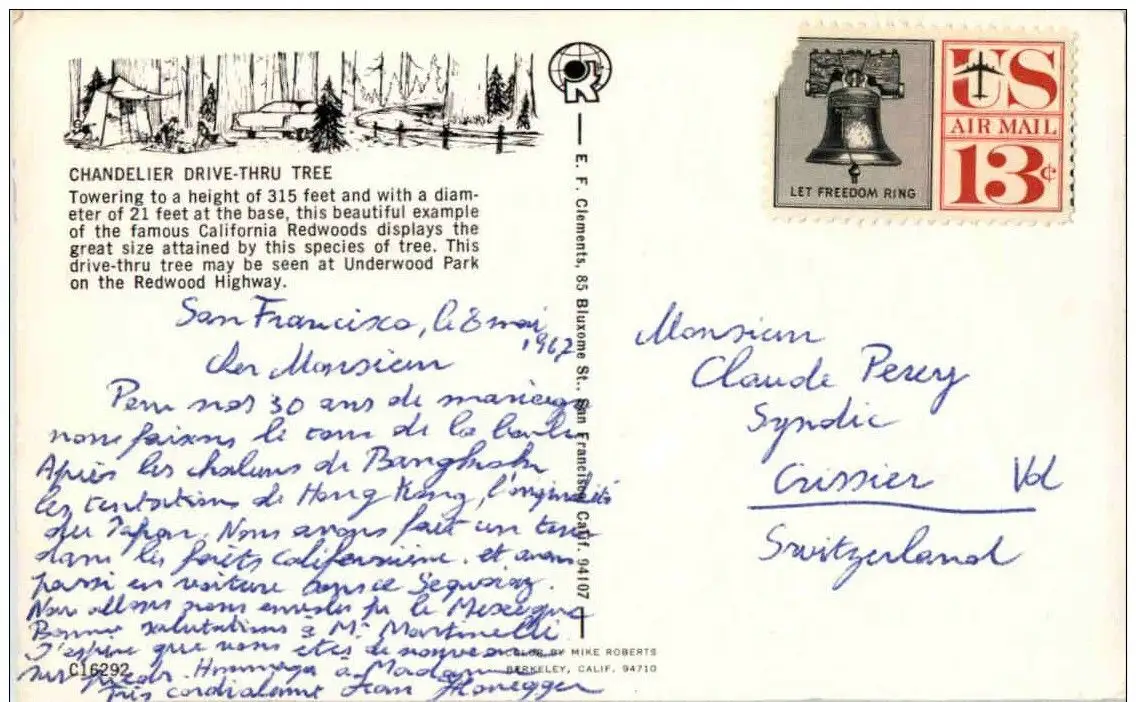 CHANDELIER DRIVE-THRU TREE
Towering to a height of 315 feet and with a diam-
eter of 21 feet at the base, this beautiful example
of the famous California Redwoods displays the
great size attained by this species of tree. This
drive-thru tree may be seen at Underwood Park
on the Redwood Highway.
San Francisco, le 8 mai
1967
Cher Monsieur
Pour nos 30 ans de mariage
nous faisons le tour de la boule
Après les chaleurs de Bangkok
les tentations de Hong Kong, l'originalité
du Japon. Nous avons fait un tour
dans les forêts californienne et avons
passé en voiture dans ce Sequoia.
Nous allons nous envoler pr le Mexique
Bonnes salutations à Mr Martinelli
J'espère que vous êtes de nouveau
sur pieds. Hommages à Madame
Très cordialement Jean Honegger
C16292
K
E. F. Clements, 85 Bluxome St., San Francisco, Calif. 94107
COLOR BY MIKE ROBERTS
BERKELEY, CALIF. 94710
LET FREEDOM RING
US
AIR MAIL
13¢
Monsieur
Claude Perey
Syndic
Crissier Vd
Switzerland